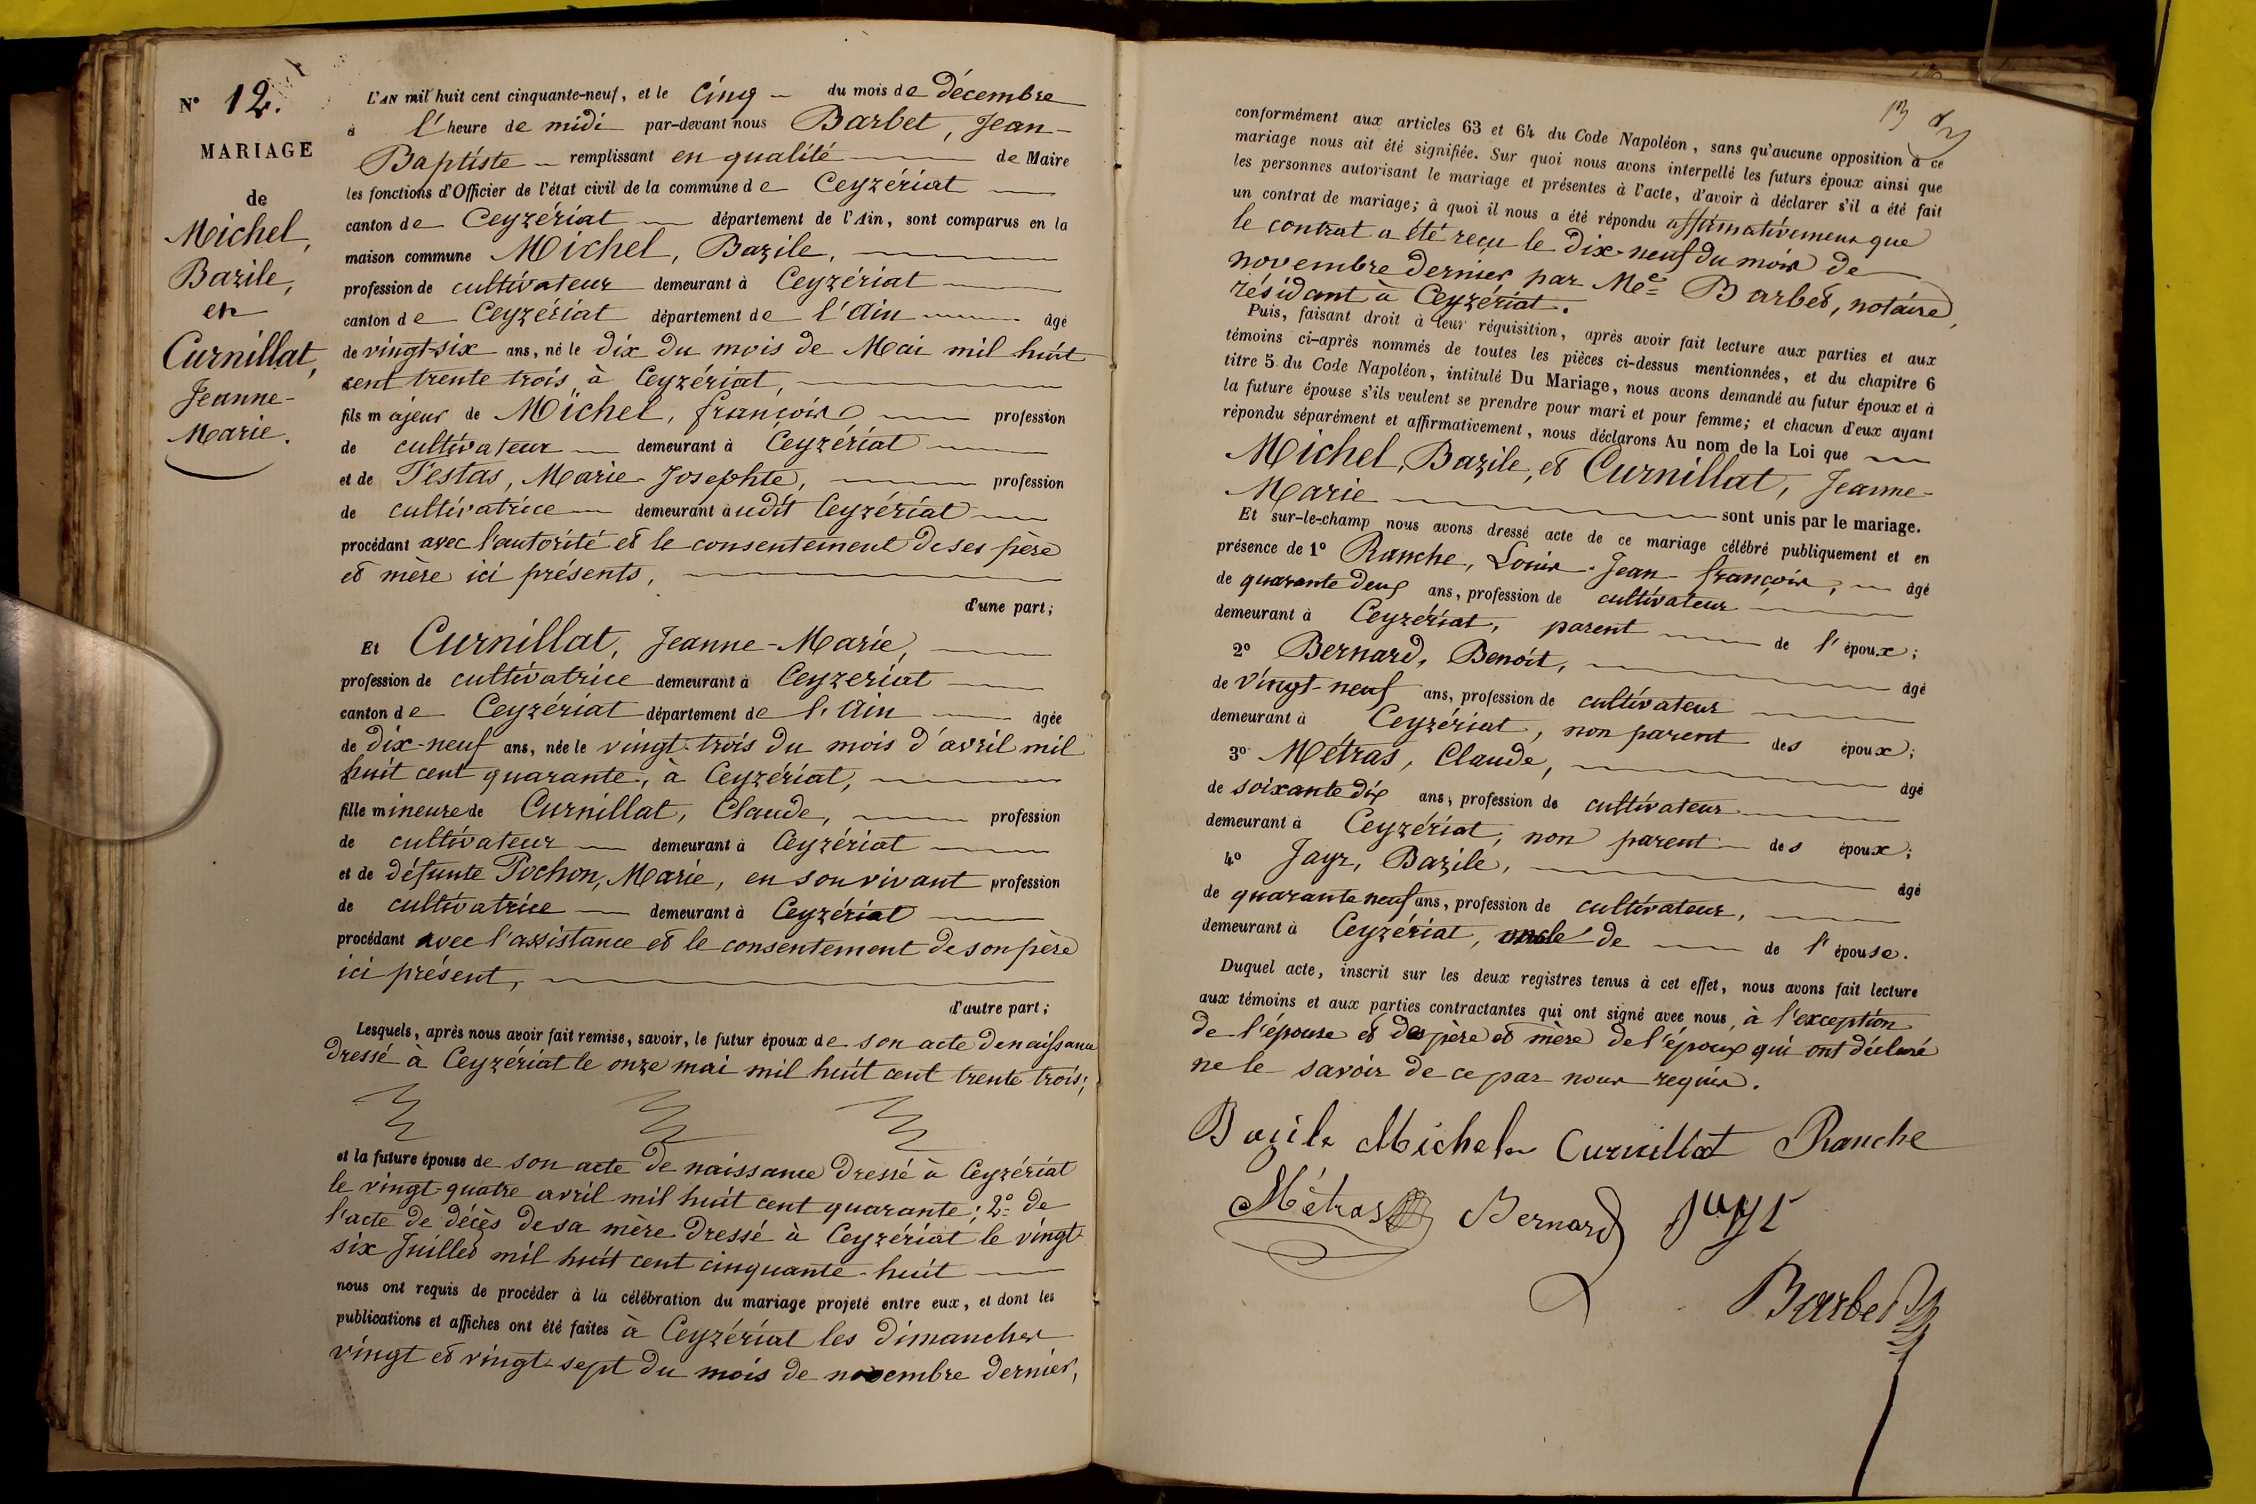 N° 12.
MARIAGE
de
Michel,
Bazile,
et
Curnillat,
Jeanne-
Marie.
L'AN mil huit cent cinquante-neuf, et le cinq du mois de décembre
à l'heure de midi par-devant nous Barbet, Jean-
Baptiste remplissant en qualité de Maire
les fonctions d'Officier de l'état civil de la commune de Ceyzériat
canton de Ceyzériat département de l'Ain, sont comparus en la
maison commune Michel, Bazile,
profession de cultivateur demeurant à Ceyzériat
canton de Ceyzériat département de l'Ain âgé
de vingt-six ans, né le dix du mois de Mai mil huit
cent trente trois, à Ceyzériat,
fils majeur de Michel, françois profession
de cultivateur demeurant à Ceyzériat
et de Testas, Marie-Josephte, profession
de cultivatrice demeurant audit Ceyzériat
procédant avec l'autorité et le consentement de ses père
et mère ici présents,
d'une part;
Et Curnillat, Jeanne-Marie,
profession de cultivatrice demeurant à Ceyzeriat
canton de Ceyzériat département de l'Ain âgée
de dix-neuf ans, née le vingt-trois du mois d'avril mil
huit cent quarante, à Ceyzériat,
fille mineure de Curnillat, Claude, profession
de cultivateur demeurant à Ceyzériat
et de défunte Pochon, Marie, en son vivant profession
de cultivatrice demeurant à Ceyzériat
procédant avec l'assistance et le consentement de son père
ici présent,
d'autre part;
Lesquels, après nous avoir fait remise, savoir, le futur époux de son acte de naissance
dressé à Ceyzériat le onze mai mil huit cent trente trois;
et la future épouse de son acte de naissance dressé à Ceyzériat
le vingt-quatre avril mil huit cent quarante; 2° de
l'acte de décès de sa mère dressé à Ceyzériat le vingt
six Juillet mil huit cent cinquante-huit
nous ont requis de procéder à la célébration du mariage projeté entre eux, et dont les
publications et affiches ont été faites à Ceyzériat les dimanches
vingt et vingt-sept du mois de novembre dernier,
conformément aux articles 63 et 64 du Code Napoléon, sans qu'aucune opposition à ce
mariage nous ait été signifiée. Sur quoi nous avons interpellé les futurs époux ainsi que
les personnes autorisant le mariage et présentes à l'acte, d'avoir à déclarer s'il a été fait
un contrat de mariage; à quoi il nous a été répondu affirmativement que
le contrat a été reçu le dix-neuf du mois de
novembre dernier, par Me Barbet, notaire,
résidant à Ceyzériat.
Puis, faisant droit à leur réquisition, après avoir fait lecture aux parties et aux
témoins ci-après nommés de toutes les pièces ci-dessus mentionnées, et du chapitre 6
titre 5 du Code Napoléon, intitulé Du Mariage, nous avons demandé au futur époux et à
la future épouse s'ils veulent se prendre pour mari et pour femme; et chacun d'eux ayant
répondu séparément et affirmativement, nous déclarons Au nom de la Loi que
Michel, Bazile, et Curnillat, Jeanne-
Marie sont unis par le mariage.
Et sur-le-champ nous avons dressé acte de ce mariage célébré publiquement et en
présence de 1° Ranche, Louis-Jean-françois, âgé
de quarante deux ans, profession de cultivateur
demeurant à Ceyzériat, parent de l'époux;
2° Bernard, Benoit, âgé
de vingt-neuf ans, profession de cultivateur
demeurant à Ceyzériat, non parent des époux;
3° Métras, Claude, âgé
de soixante dix ans, profession de cultivateur
demeurant à Ceyzériat, non parent des époux;
4° Jayr, Bazile, âgé
de quarante neuf ans, profession de cultivateur,
demeurant à Ceyzériat, oncle de de l'épouse.
Duquel acte, inscrit sur les deux registres tenus à cet effet, nous avons fait lecture
aux témoins et aux parties contractantes qui ont signé avec nous, à l'exception
de l'épouse et des père et mère de l'époux qui ont déclaré
ne le savoir de ce par nous requis.
Bazile Michel Curnillat Ranche
Métras Bernard Jayr
Barbet